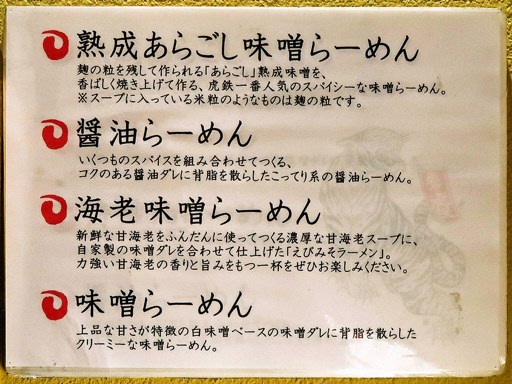 熟成あらごし味噌らーめん
麹の粒を残して作られる「あらごし」熟成味噌を、
香ばしく焼き上げて作る、虎鉄一番人気のスパイシーな味噌らーめん。
※スープに入っている米粒のようなものは麹の粒です。
醤油らーめん
いくつものスパイスを組み合わせてつくる、
コクのある醤油ダレに背脂を散らしたこってり系の醤油らーめん。
海老味噌らーめん
新鮮な甘海老をふんだんに使ってつくる濃厚な甘海老スープに、
自家製の味噌ダレを合わせて仕上げた「えびみそラーメン」。
力強い甘海老の香りと旨みをもつ一杯をぜひお楽しみください。
味噌らーめん
上品な甘さが特徴の白味噌ベースの味噌ダレに背脂を散らした
クリーミーな味噌らーめん。